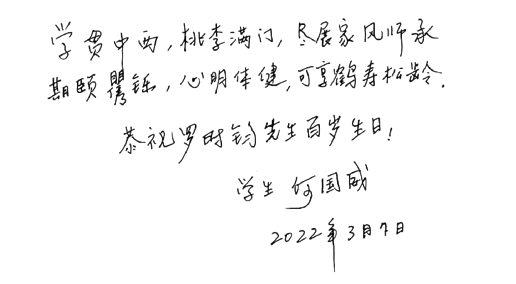 学贯中西，桃李满门，尽展家风师承
期颐矍铄，心明体健，可享鹤寿松龄．
恭祝罗时钧先生百岁生日！
学生 何国威
2022年3月7日